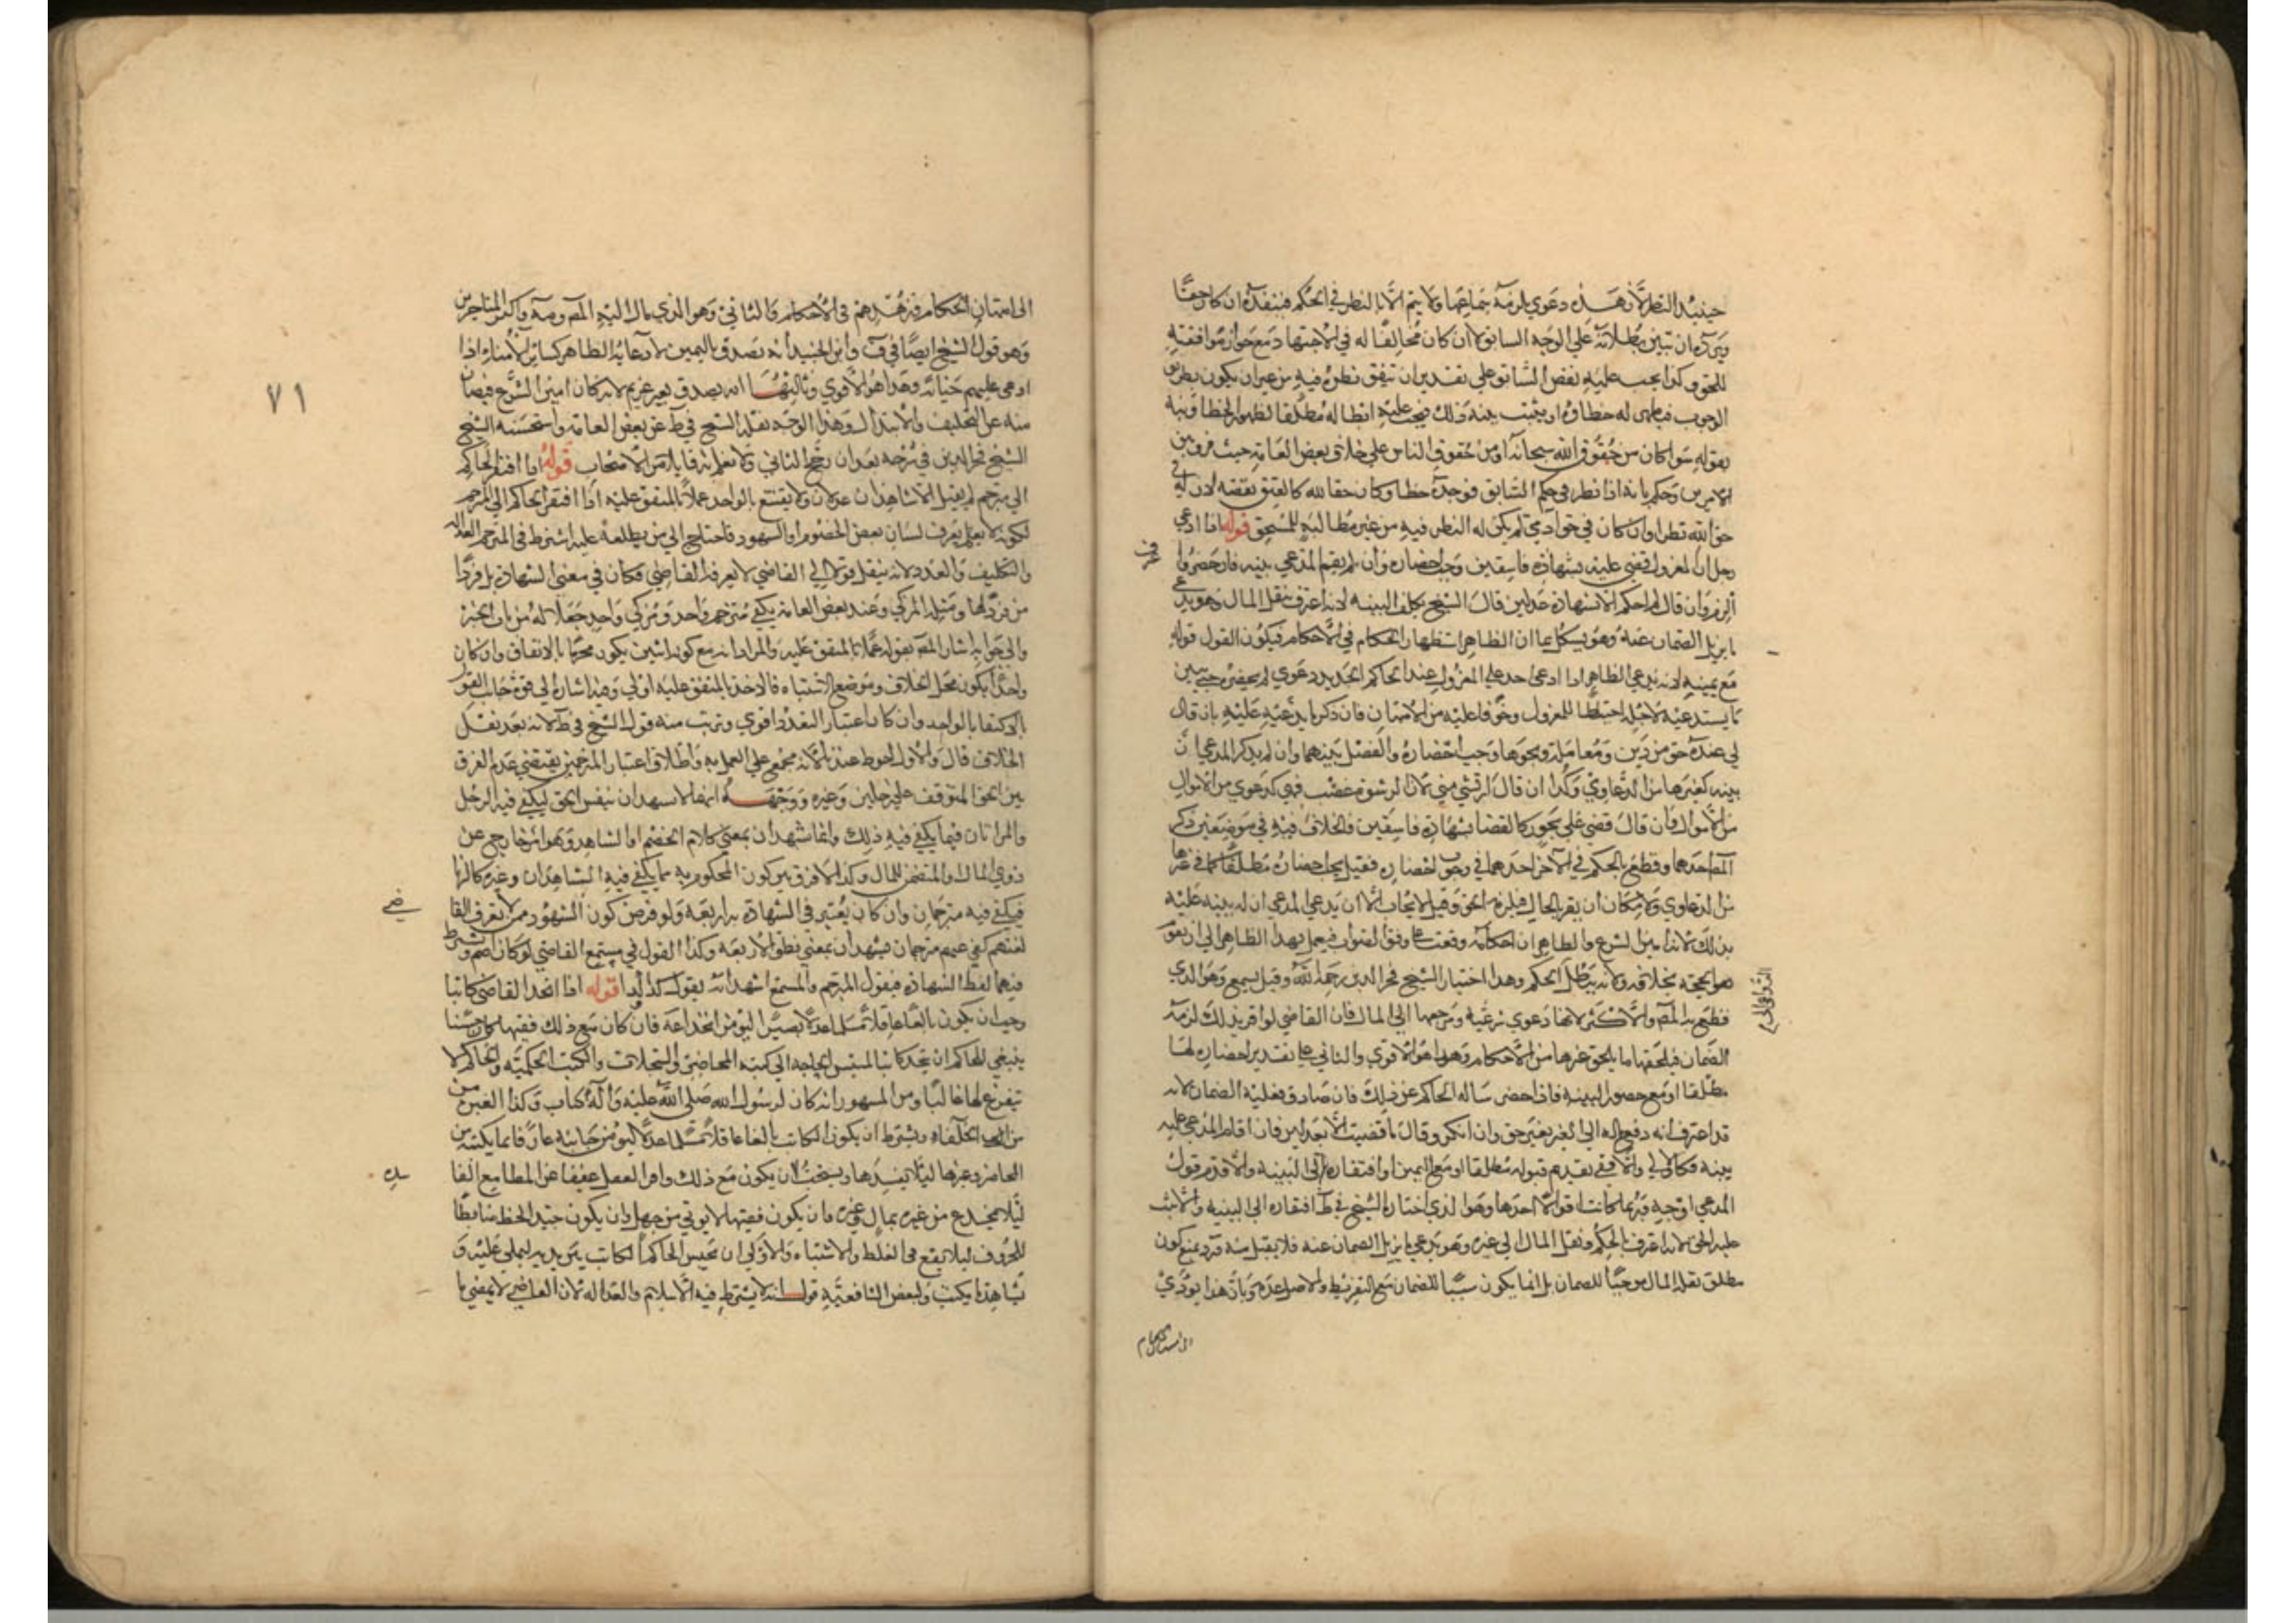 حينئذ النظر لان هذه دعوي يلزمه سماعها ولا يتم الا بالنظر في الحكم فينفذه ان كان حقا
ويرده ان تبين بطلانه علي الوجه السابق لا ان كان مخالفا له في الاجتهاد مع جواز موافقته
للحق وكذا يجب عليه نقض السابق علي تقدير ان يتفق نظره فيه من غير ان يكون بطريق
الوجوب فيظهر له خطاؤه او يثبت بينة ذلك فيجب عليه ابطاله مطلقا لظهور الخطا ونبه
بقوله سوا كان من حقوق الله سبحانه او من حقوق الناس علي خلاف بعض العامة حيث فرق بين
الامرين وحكم بانه اذا نظر في حكم السابق فوجده خطا وكان حقا لله كالعتق نقضه لان له في
حق الله نظرا وان كان في حق ادمي لم يكن له النظر فيه من غير مطالبة المستحق قوله اذا ادعي
رجل ان المعزول قضي عليه بشهادة فاسقين وجب احضاره وان لم يقم المدعي بينه فان حضر واعترف
الزم وان قال لم احكم الا بشهادة عدلين قال الشيخ يكلف البينه لانه اعترف بنقل المال وهو يدعي
ما يزيل الضمان عنه وهو يشكل بما ان الظاهر استظهار الحكام في الاحكام فيكون القول قوله
مع يمينه لانه يدعي الظاهر اذا ادعي احد علي المعزول عند الحاكم الجديد دعوي لم يحضره حتي يبين
ما يستدعيه لاجله احتياطا للمعزول وخوفا عليه من الامتهان فان ذكر ما يدعيه عليه بان قال
لي عنده حق من دين ومعاملة ونحوها وجب احضاره والفصل بينهما وان لم يذكر المدعي ان
بينه كغيرها من الدعاوي وكذا ان قال ارتشي مني لان الرشوة غصب فهي كدعوي من الاموال
من الاموال فان قال قضي علي بجور كالقضا بشهادة فاسقين فالخلاف فيه في موضعين ذكر
المص احدهما وقطع بالحكم في الاخر احدهما في وجوب احضاره فقيل يجب احضاره مطلقا كما في غيرها
من الدعاوي ولامكان ان يقر بالحال فيلزمه الحق وقيل لا يجاب الا ان يدعي المدعي ان له بينه عليه
بذلك لانه امين الشرع والظاهر ان احكامه وقعت علي وفق الصواب فيعمل بهذا الظاهر الي ان تقوم
هو الحجه بخلافه ولانه يبطل الحكم وهذا اختيار الشيخ فخر الدين رحمه الله وقيل يسمع وهو الذي
قطع به المص والاكثر لانها دعوي شرعيه ومرجعها الي المال فان القاضي لو اقر بذلك لزمه
الضمان فيلحقها ما يلحق غيرها من الاحكام وهذا هو الاقوي والثاني علي تقدير احضاره لها
مطلقا او مع حضور البينه فاذا حضر ساله الحاكم عن ذلك فان صادق فعليه الضمان لانه
قد اعترف انه دفع ماله الي الغير بغير حق وان انكر وقال ما قضيت الا بعدلين فان اقام المدعي عليه
بينه فكالاولي والا ففي تقديم قبوله مطلقا او مع اليمين او افتقاره الي البينه والا قدم قول
المدعي اوجه وربما كانت اقوالا احدها وهو الذي اختاره الشيخ في ط افتقاره الي البينه والا ثبت
عليه الحق لانه اعترف بالحكم ونقل المال الي غيره وهو يدعي ما يزيل الضمان عنه فلا يقبل منه ورد بمنع كون
مطلق نقل المال موجبا للضمان بل انما يكون سببا للضمان مع التفريط والاصل عدمه وبان هذا يودي
الي امتهان الحكام
٧١
الي امتهان الحكام وتزهدهم في الاحكام والثاني وهو الذي مال اليه المص ومه واكثر المتاخرين
وهو قول الشيخ ايضا في ف وابن الجنيد انه يصدق باليمين لادعائه الظاهر كسائر الامناء اذا
ادعي عليهم خيانه وهذا هو الاقوي وثالثها انه يصدق بغير يمين لانه كان امين الشرع فيصان
منه عن التحليف والابتذال وهذا الوجه نقله الشيخ في ط عن بعض العامه واستحسنه الشيخ
الشيخ فخر الدين في شرحه بعد ان رجح الثاني ولا نعلم به قايلا من الاصحاب قوله اذا افتقر الحاكم
الي مترجم لم يقبل الا شاهدان عدلان ولا يقتنع بالواحد عملا بالمتفق عليه اذا افتقر الحاكم الي المترجم
لكونه لا يعلم يعرف لسان بعض الخصوم او الشهود فاحتاج الي من يطلعه عليه اشترط في المترجم العداله
والتكليف والعدد لانه ينقل قولا الي القاضي لا يعرفه القاضي فكان في معني الشهادة بل فردا
من فردها ومثله المزكي وعند بعض العامه يكفي مترجم واحد ومزكي واحد جعلا له من باب الخبر
والي جوابه اشار المص بقوله عملا بالمتفق عليه والمراد انه مع كونه اثنين يكون مجزيا بالاتفاق وان كان
واحدا يكون محل الخلاف وموضع الاشتباه فالاخذ بالمتفق عليه اولي وهذا اشارة الي قوة جانب القول
بالاكتفا بالواحد وان كان اعتبار التعدد اقوي وقريب منه قول الشيخ في ط لانه بعد نقل
الخلاف قال والاول احوط عندنا لانه مجمع علي العمل به واطلاق اعتبار المترجمين يقتضي عدم الفرق
بين الحق المتوقف علي رجلين وغيره ووجهه انهما لا يشهدان بنفس الحق ليكفي فيه الرجل
والمراتان فيما يكفي فيه ذلك وانما شهدان بمعني كلام الخصم او الشاهد وهو امر خارج عن
ذوي المال والمتضمن للمال وكذا لا فرق بين كون المحكوم به مما يكفي فيه الشاهدان وغيره كالزنا
فيكفي فيه مترجمان وان كان يعتبر في الشهادة به اربعة ولو فرض كون الشهود ممن لا يعرف القاضي
لغتهم كفي عنهم مترجمان يشهدان بمعني نطق الاربعه وكذا القول في مستمع القاضي لو كان اصم ويشترط
فيهما لفظ الشهادة فيقول المترجم والمسمع اشهد انه يقول كذا وكذا قوله اذا اتخذ القاضي كاتبا
وجب ان يكون بالغا عاقلا مسلما عدلا بصيرا ليومن انخداعه فان كان مع ذلك فقيها كان حسنا
ينبغي للحاكم ان يتخذ كاتبا لمسيس الحاجه الي كتبه المحاضر والسجلات والكتب الحكميه والحاكم لا
يتفرغ لها غالبا ومن المشهور انه كان لرسول الله صلي الله عليه واله كتاب وكذا لغيره من
من الخلفاء ويشترط ان يكون الكاتب بالغا عاقلا مسلما عدلا ليومن خيانته عارفا بما يكتبه من
المحاضر وغيرها ليلا يفسدها ويستحب ان يكون مع ذلك وافر العقل عفيفا عن المطامع الفاسده
ليلا يخدع من غيره بمال وغيره وان يكون فقيها لا يوتي من جهل وان يكون جيد الخط ضابطا
للحروف ليلا يقع في الغلط والاشتباه والاولي ان يجلس الحاكم الكاتب بين يديه ليملي عليه و
يشاهد ما يكتب ولبعض الشافعيه قول انه لا يشترط فيه الاسلام والعداله لان القاضي لا يمضي ما